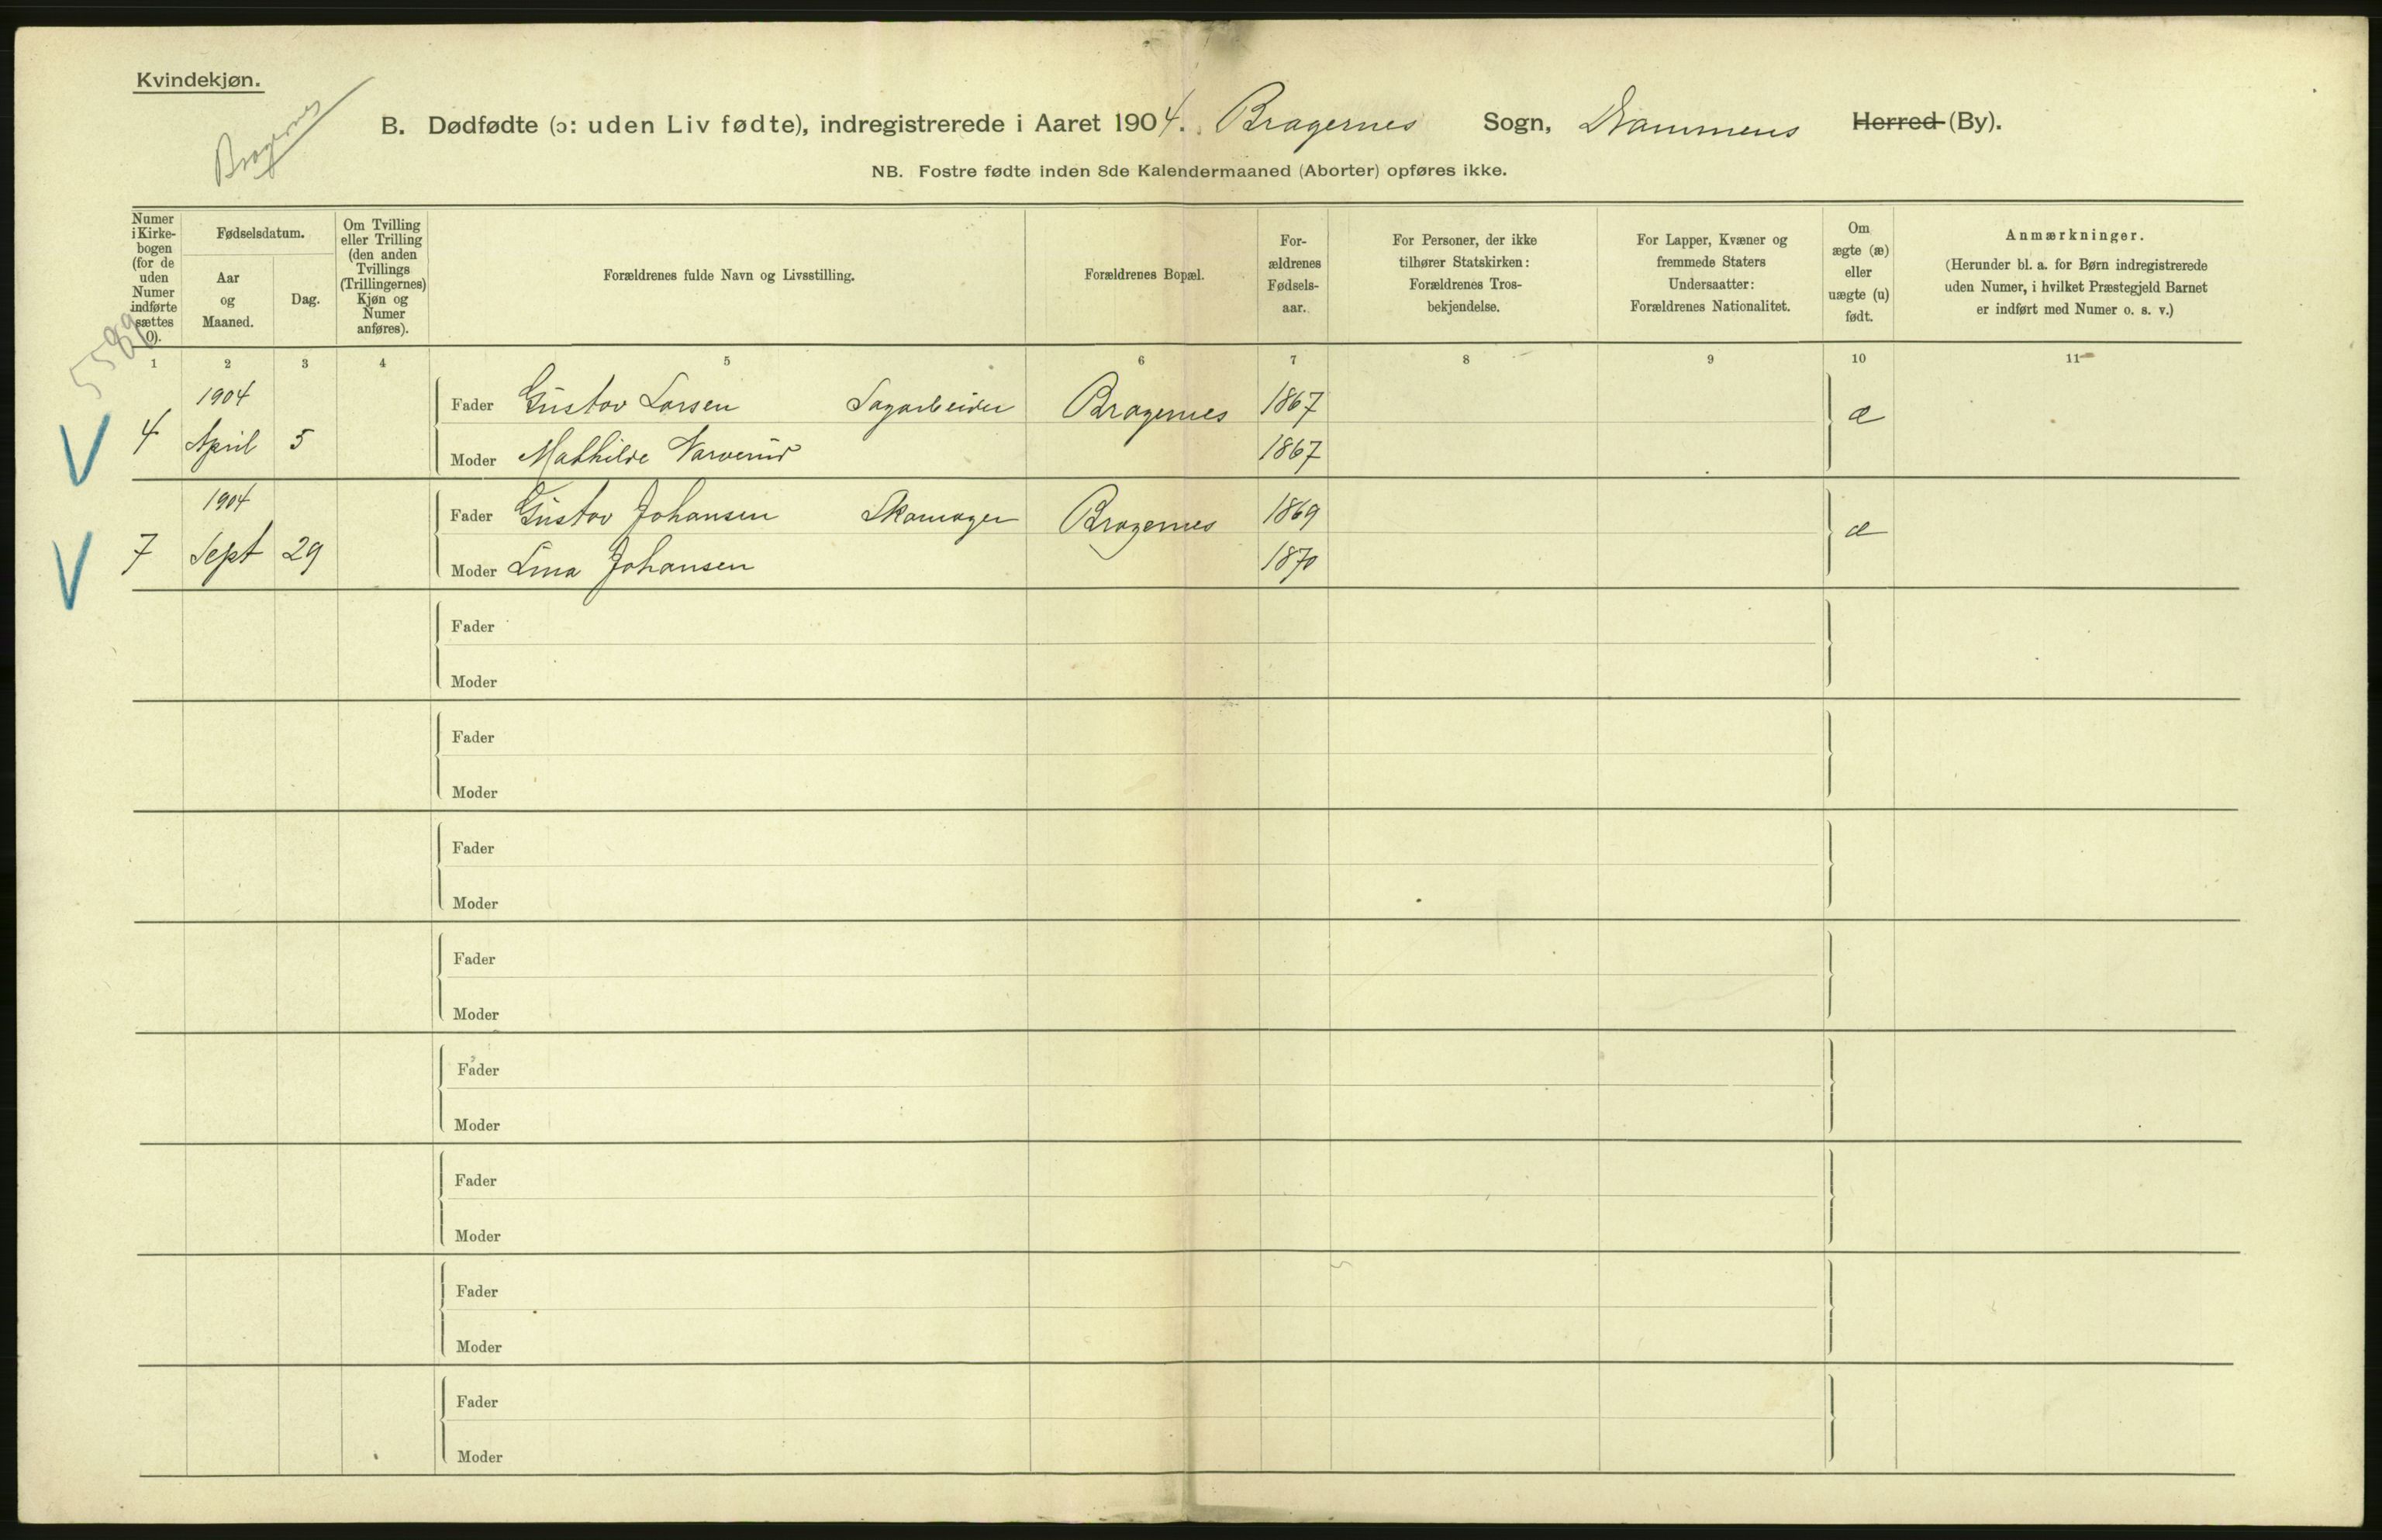 Kvindekjøn.
Bragernes
B. Dødfødte (ɔ: uden Liv fødte), indregistrerede i Aaret 1904. Bragernes Sogn, Drammens Herred (By).
NB. Fostre fødte inden 8de Kalendermaaned (Aborter) opføres ikke.
Numer i Kirke-bogen (for de uden Numer indførte sættes 0).
Fødselsdatum.
Aar og Maaned.
Dag.
Om Tvilling eller Trilling (den anden Tvillings (Trillingernes) Kjøn og Numer anføres).
Forældrenes fulde Navn og Livsstilling.
Forældrenes Bopæl.
For-ældrenes Fødsels-aar.
For Personer, der ikke tilhører Statskirken: Forældrenes Tros-bekjendelse.
For Lapper, Kvæner og fremmede Staters Undersaatter: Forældrenes Nationalitet.
Om ægte (æ) eller uægte (u) født.
Anmærkninger.
(Herunder bl. a. for Børn indregistrerede uden Numer, i hvilket Præstegjeld Barnet er indført med Numer o. s. v.)
1 2 3 4 5 6 7 8 9 10 11
1904
Fader Gustav Larsen Sagarbeider Bragernes 1867 æ
4 April 5
Moder Mathilde Narverud 1867
1904
Fader Gustav Johansen Skomager Bragernes 1869 æ
7 Sept 29
Moder Lina Johansen 1870
Fader
Moder
Fader
Moder
Fader
Moder
Fader
Moder
Fader
Moder
Fader
Moder
Fader
Moder
Fader
Moder